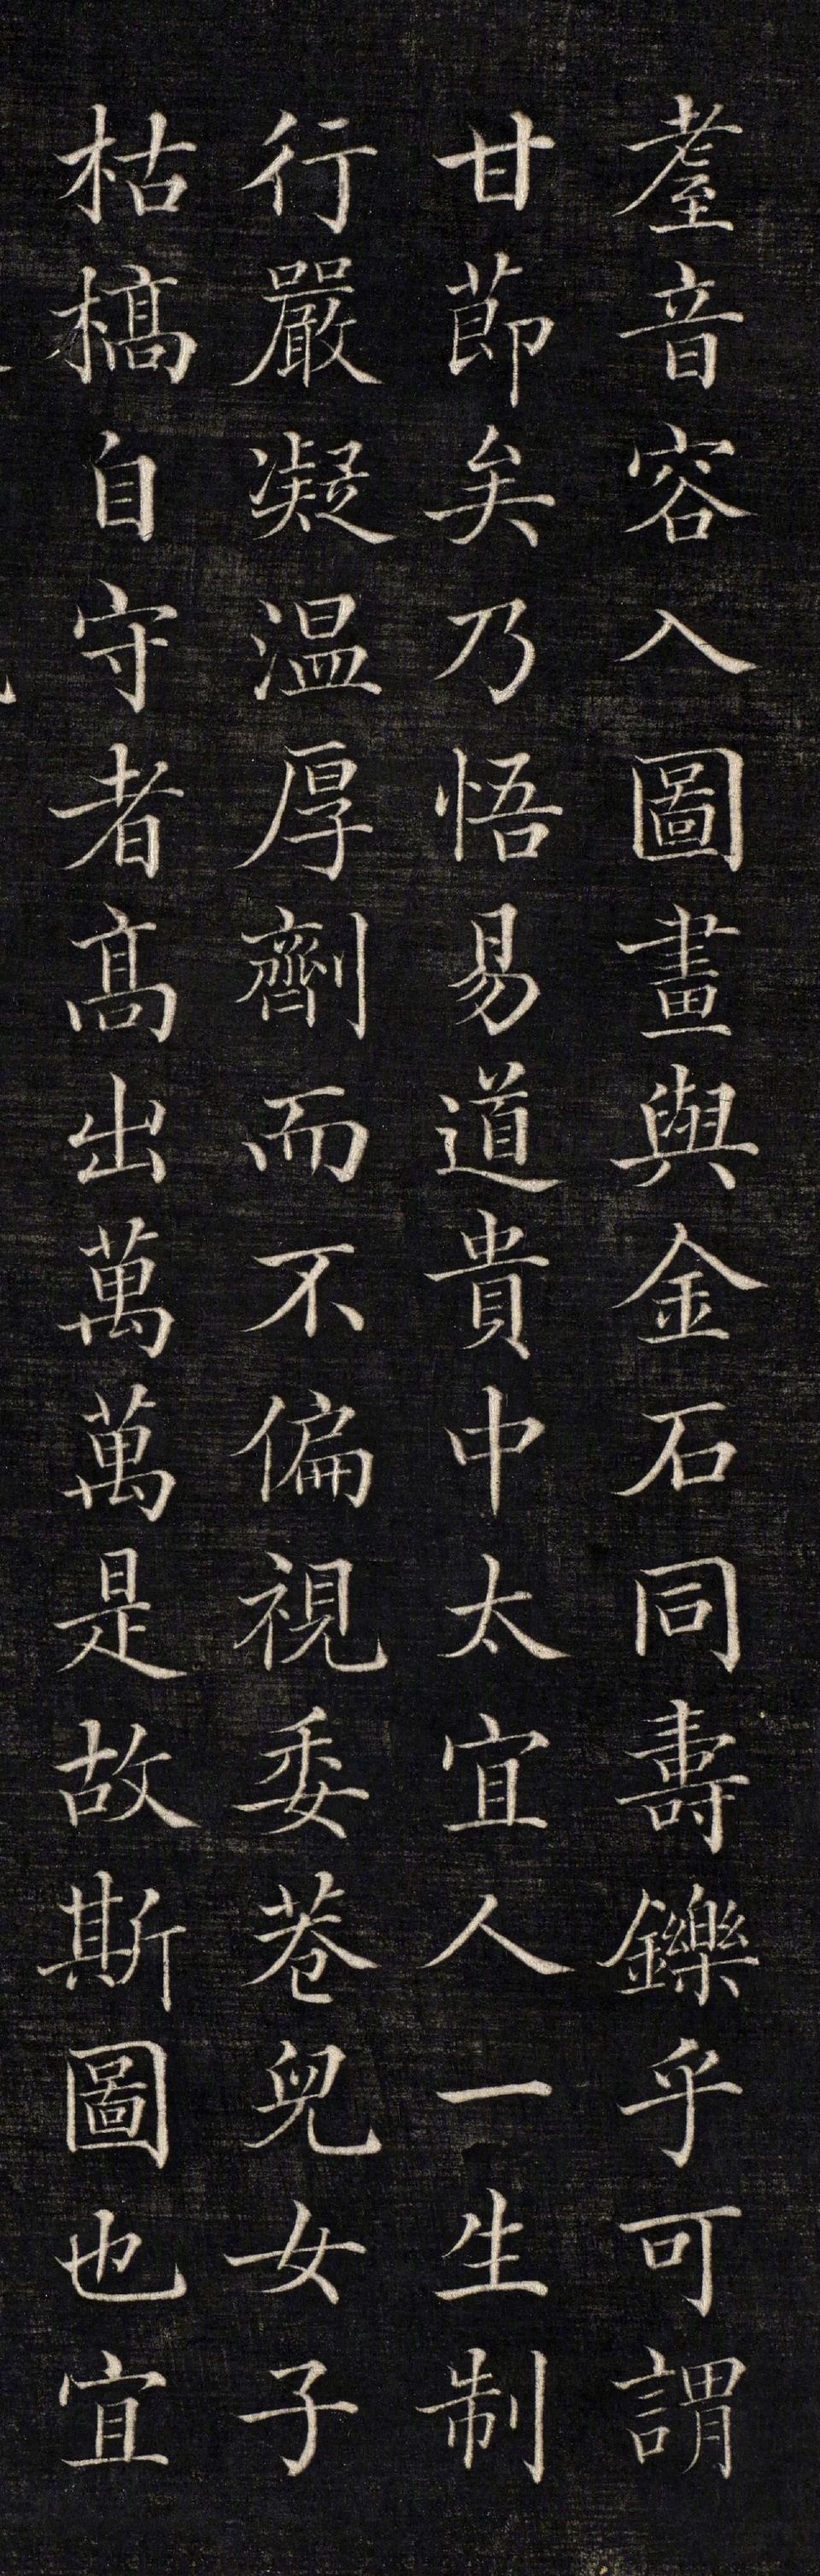 耋音容入圖畫與金石同壽鑠乎可謂
甘節矣乃悟易道貴中太宜人一生制
行嚴凝温厚劑而不偏視委巷兒女子
枯槁自守者髙出萬萬是故斯圖也宜